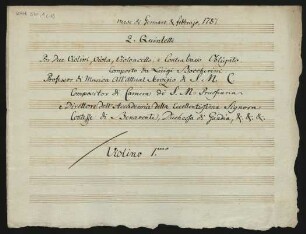 mesi di Gennaro, e febbrajo, 1787
2. Quintetti
Per Due Violini, Viola, Violoncello, e Contrabasso Obligato
Composti da Luigi Boccherini
Professor di Musica All'attual Servigio di S. M. C
Compositor di Camera di S. M. Prussiana
e Direttore dell'Accademia della Eccellentissima Signora
Contessa di Benavente, Duchessa di Gandia, &. &. &.
Violino 1.mo